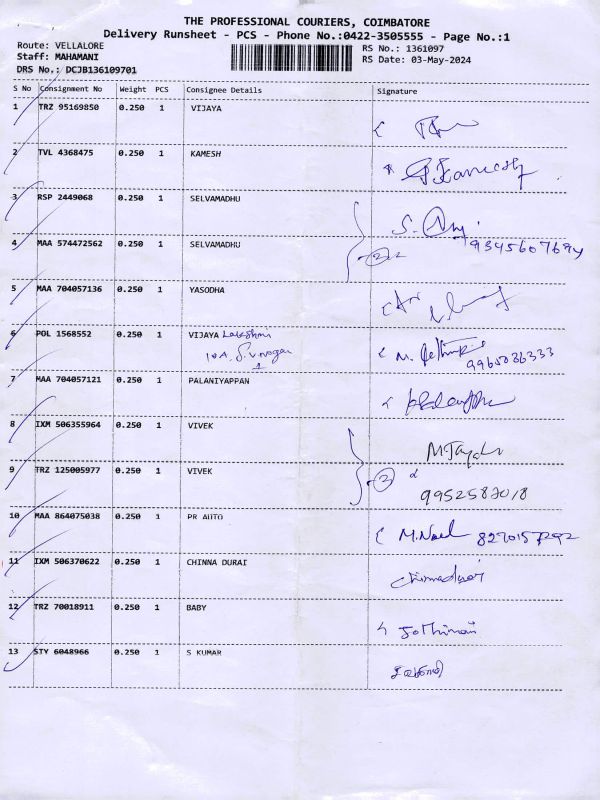 THE PROFESSIONAL COURIERS, COIMBATORE
Delivery Runsheet - PCS - Phone No.:0422-3505555 - Page No.:1
Route: VELLALORE
RS No.: 1361097
Staff: MAHAMANI
RS Date: 03-May-2024
DRS No.: DCJB136109701
S No Consignment No Weight PCS Consignee Details Signature
1 TRZ 95169850 0.250 1 VIJAYA
2 TVL 4368475 0.250 1 KAMESH
3 RSP 2449068 0.250 1 SELVAMADHU
4 MAA 574472562 0.250 1 SELVAMADHU 2 9345607694
5 MAA 704057136 0.250 1 YASODHA
6 POL 1568552 0.250 1 VIJAYA Lakshmi
10A. S.V. nagar
7 MAA 704057121 0.250 1 PALANIYAPPAN
8 IXM 506355964 0.250 1 VIVEK
9 TRZ 125005977 0.250 1 VIVEK 2
10 MAA 864075038 0.250 1 PR AUTO M. Noel
11 IXM 506370622 0.250 1 CHINNA DURAI Chinnadurai
12 TRZ 70018911 0.250 1 BABY Jothimani
13 STY 6048966 0.250 1 S KUMAR